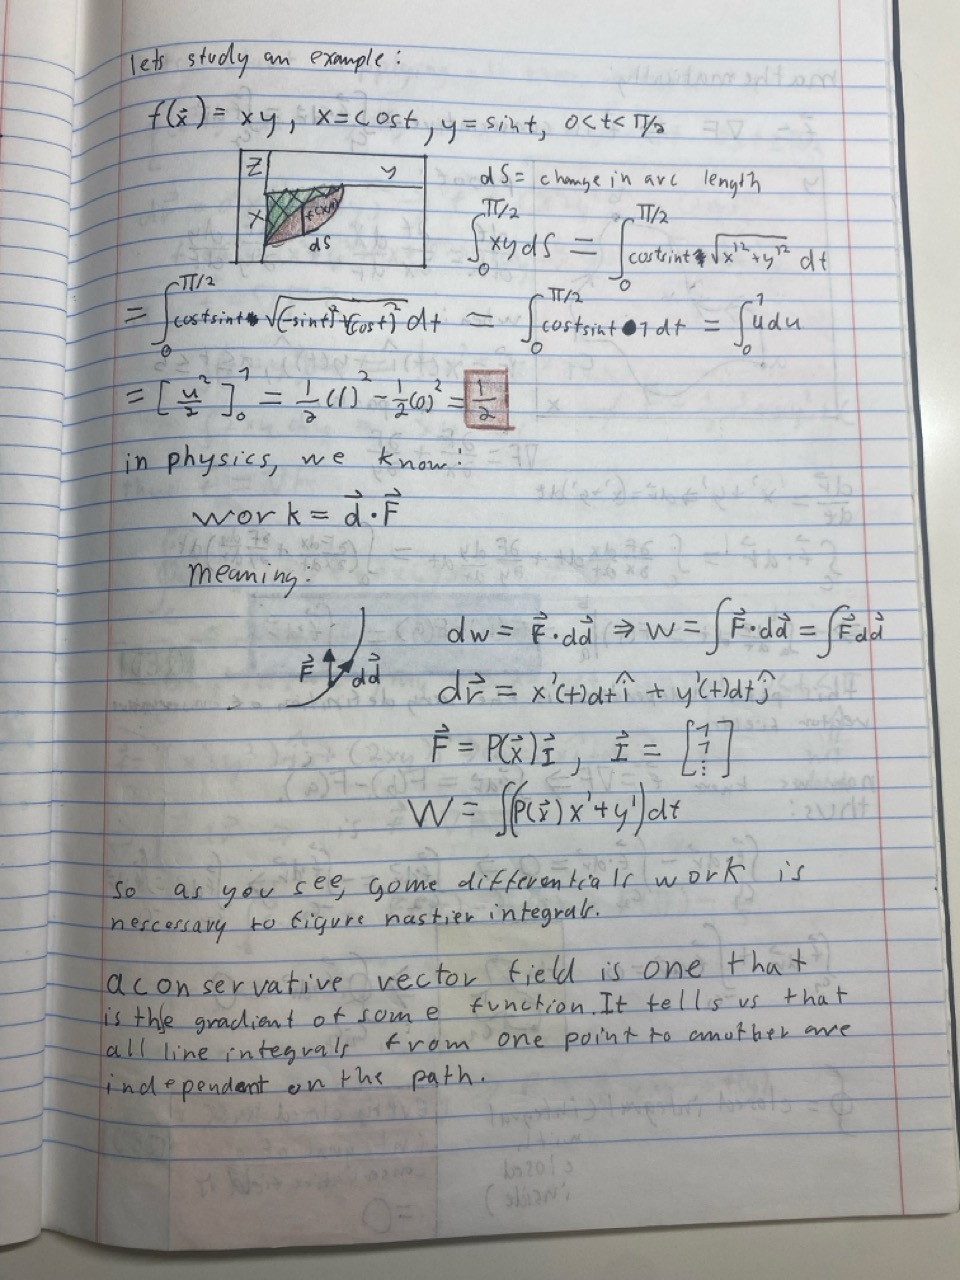 lets study an example:
f(x⃗) = xy, x=cost, y=sint, 0<t<π/2
Z y
x f(x,y)
dS
dS = change in arc length
∫₀^{π/2} xy dS = ∫₀^{π/2} costsint • √(x'² + y'²) dt
= ∫₀^{π/2} costsint • √((-sint)² + (cost)²) dt = ∫₀^{π/2} costsint • 1 dt = ∫₀¹ u du
= [u²/2]₀¹ = 1/2 (1)² - 1/2 (0)² = 1/2
in physics, we know:
work = d⃗ · F⃗
meaning:
F⃗ dd⃗
dw = F⃗ · dd⃗ ⇒ W = ∫F⃗ · dd⃗ = ∫F⃗ dd⃗
dr⃗ = x'(t)dt î + y'(t)dt ĵ
F⃗ = P(x⃗) I⃗, I⃗ = [1 1 ⋮]
W = ∫(P(x⃗) x' + y')dt
so as you see, some differentials work is
nescessary to figure nastier integrals.
a conservative vector field is one that
is the gradient of some function. It tells us that
all line integrals from one point to another are
independent on the path.